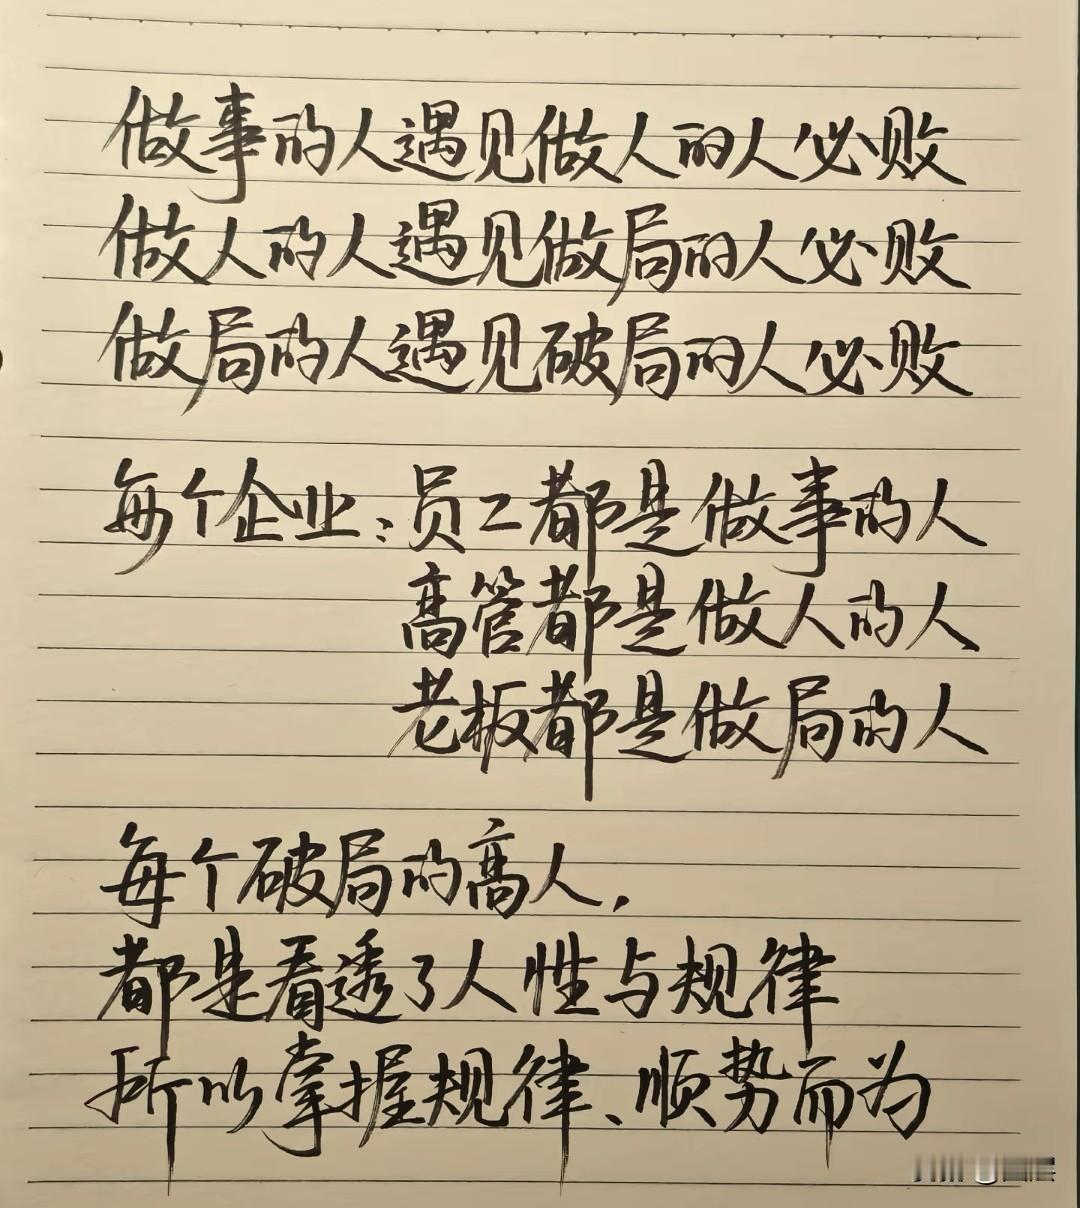 做事的人遇见做人的人必败
做人的人遇见做局的人必败
做局的人遇见破局的人必败
每个企业:员工都是做事的人
高管都是做人的人
老板都是做局的人
每个破局的高人,
都是看透了人性与规律
所以掌握规律、顺势而为